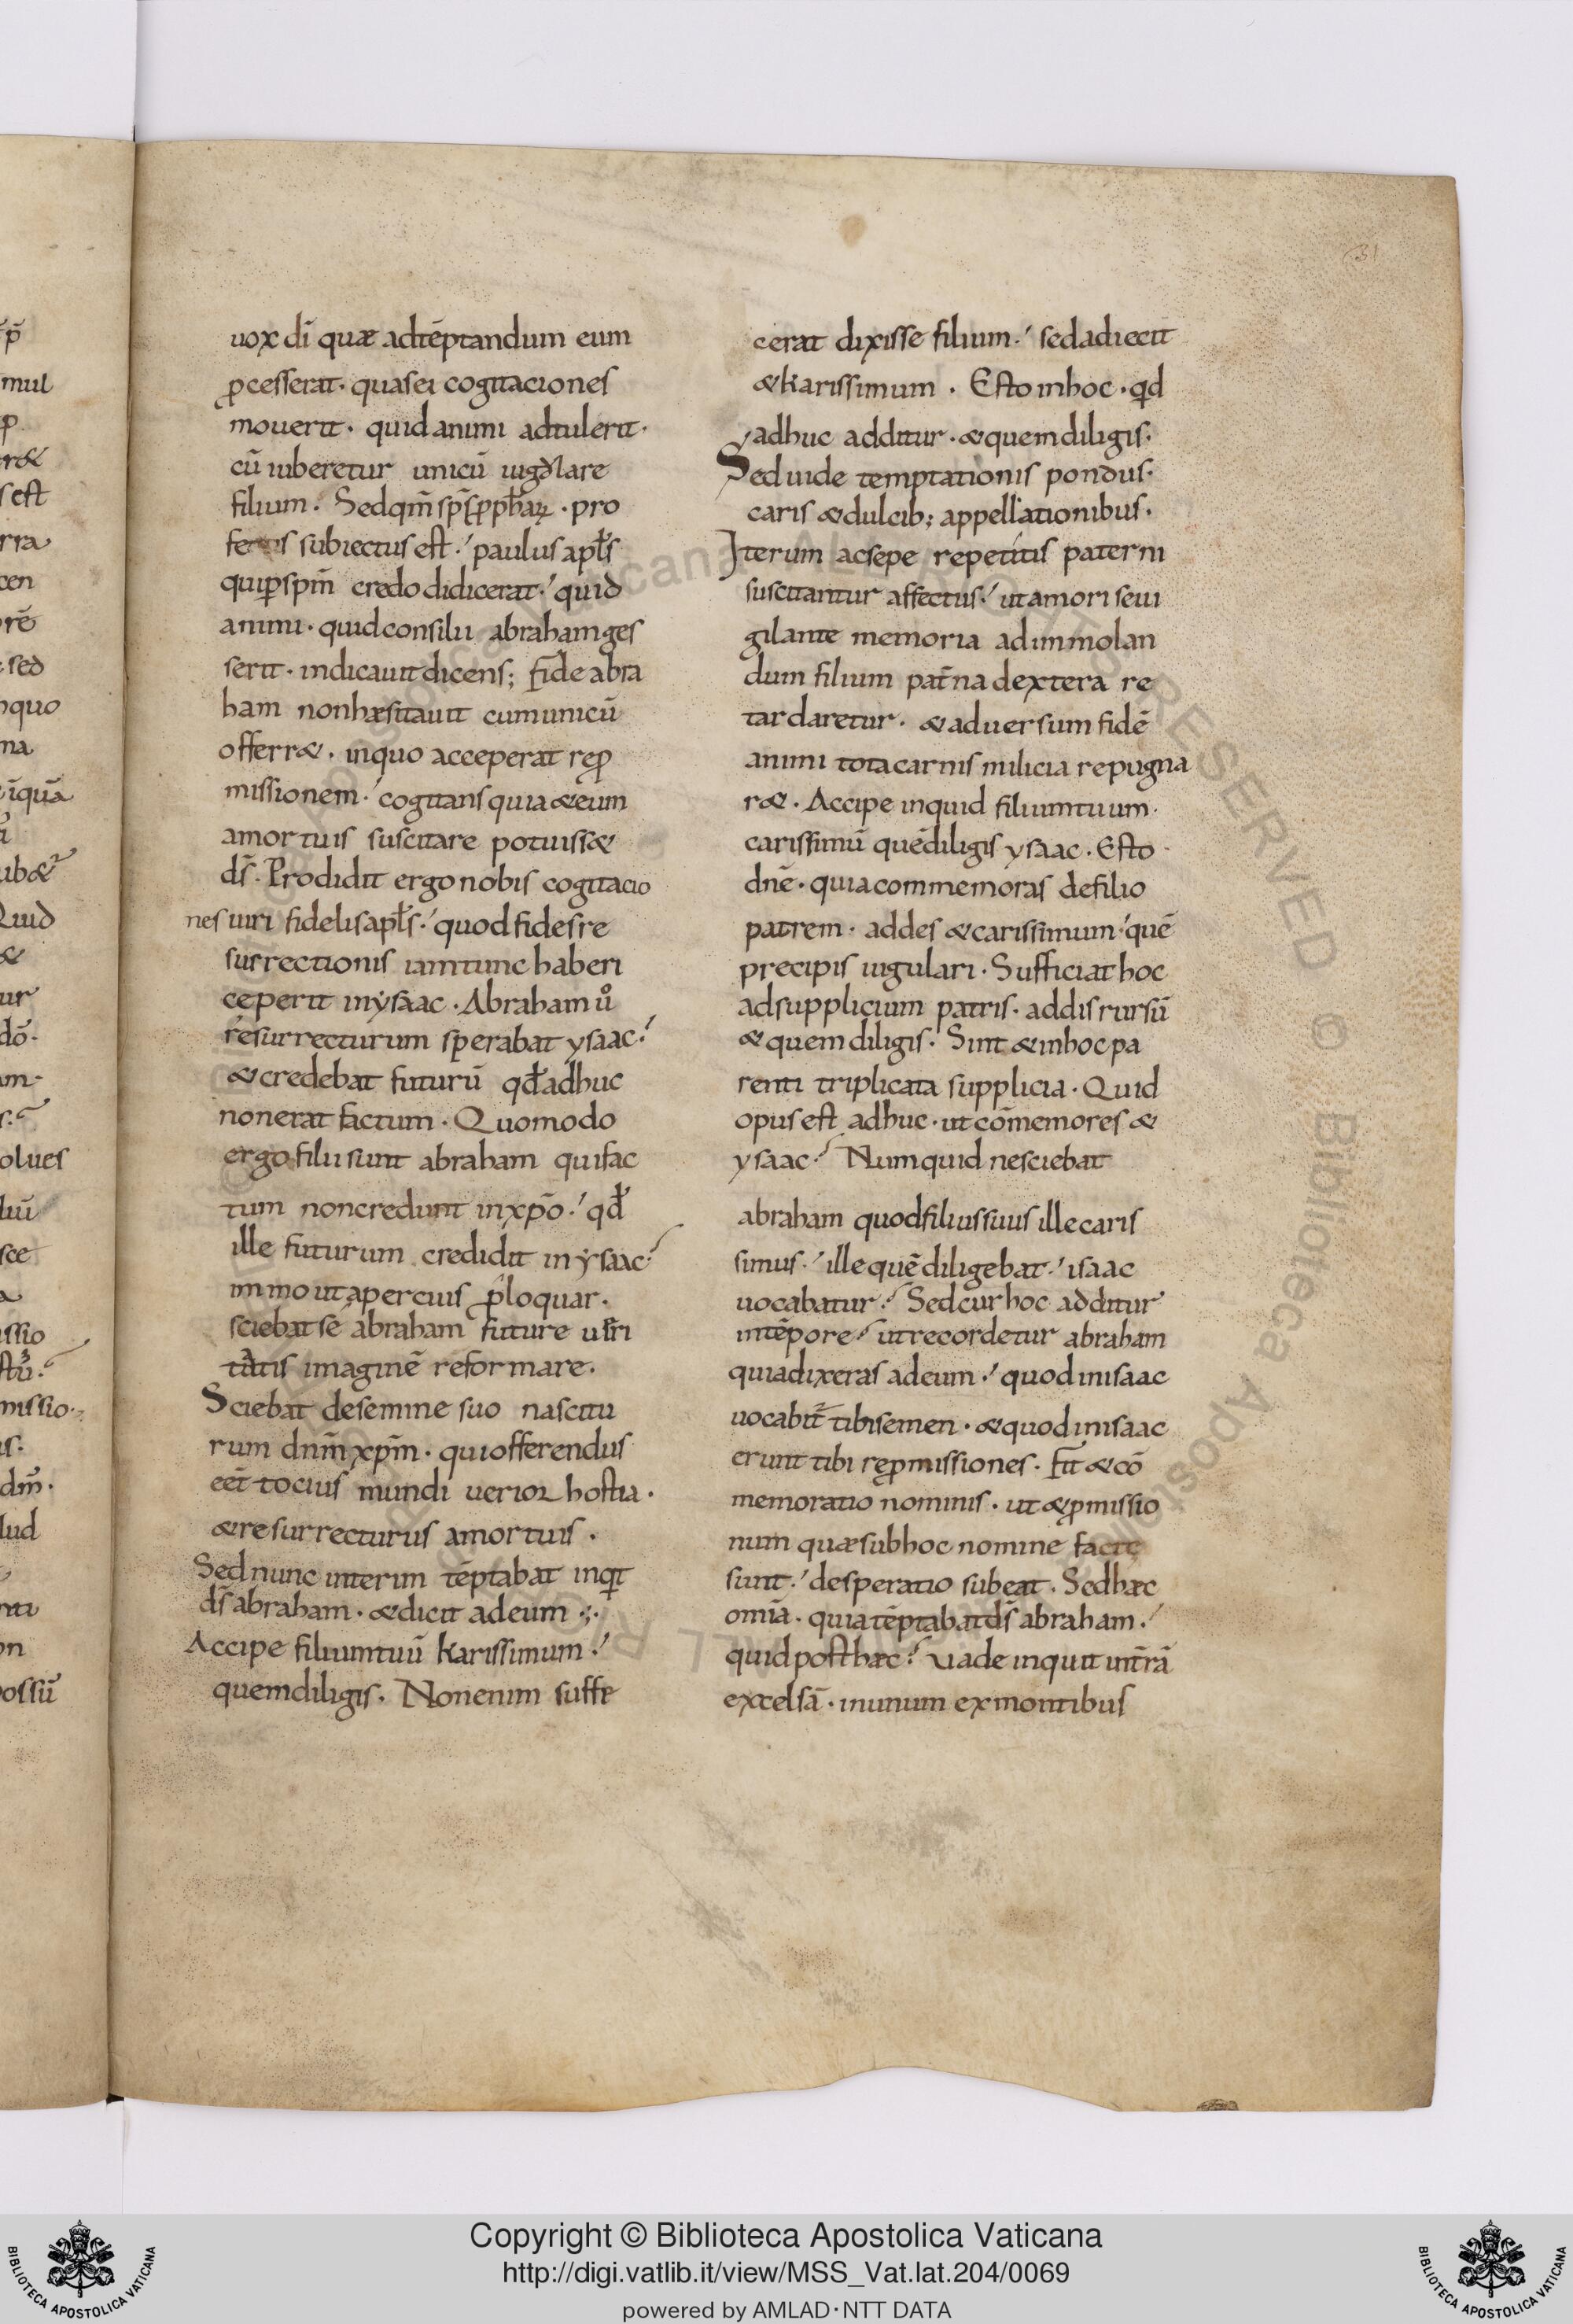 31
uox dī quæ adtēptandum eum
ꝓcesserat · quas ei cogitaciones
mouerit · quid animi adtulerit ·
cū iuberetur unicū iugulare
filium · Sed qm̄ sp̄s ꝓph̄arꝫ · pro
subiectus est ·' paulus apl̄s
qui ꝑ spm̄ credo didicerat ·' quid
animi · quid consilii abraham ges
serit · indicauit dicens; Fide abra
ham non hæsitauit cum unicū
offerr& · in quo acceperat reꝓ
missionem ·' cogitans quia & eum
a mortuis suscitare potuiss&
ds̄ · Prodidit ergo nobis cogitacio
nes uiri fidelis apl̄s ·' quod fides re
surrectionis iam tunc haberi
ceperit in ysaac · Abraham uo᷎
resurrecturum sperabat ysaac ·'
& credebat futurū qđ adhuc
non erat factum · Quomodo
ergo filii sunt abraham qui fac
tum non credunt in xp̄o ·' qđ
ille futurum credidit in ysaac ·'
immo ut apercius ꝓloquar ·
sciebat se abraham future ueri
tatis imaginē reformare ·
Sciebat de semine suo nascitu
rum dnm̄ xpm̄ · qui offerendus
eēt tocius mundi uerior hostia ·
& resurrecturus a mortuis ·
Sed nunc interim tēptabat inqt
ds̄ abraham · & dicit ad eum ·:·
Accipe filium tuū karissimum ·'
quem diligis · Non enim suffe
cerat dixisse filium ·' sed adiecit
& karissimum · Esto in hoc · qd
adhuc additur · & quem diligis ·
Sed uide temptationis pondus ·
caris & dulcib; appellationibus ·
Iterum ac sepe repetitis paterni
suscitantur affectus ·' ut amoris eui
gilante memoria ad immolan
dum filium pat̄na dextera re
tardaretur · & aduersum fidē
animi tota carnis milicia repugna
r& · Accipe inquid filium tuum ·
carissimū quē diligis ysaac · Esto ·
dn̄e · quia commemoras de filio
patrem · addes & carissimum ·' quē
precipis iugulari · Sufficiat hoc
ad supplicium patris · addis rursū
& quem diligis · Sint & in hoc pa
renti triplicata supplicia · Quid
opus est adhuc · ut cōmemores &
ysaac ·' Numquid nesciebat
abraham quod filius suus ille caris
simus ·' ille quē diligebat ·' isaac
uocabatur ·' Sed cur hoc additur
in tēpore ·' ut recordetur abraham
quia dixeras ad eum ·' quod in isaac
uocabit̄ tibi semen · & quod in isaac
erunt tibi reꝓmissiones · Fit & cō
memoratio nominis · ut & ꝓmissio
num quæ sub hoc nomine factę
sunt ·' desperatio subeat · Sed hæc
omīa · quia tēptabat ds̄ abraham ·'
quid post hæc ·' Uade inquit in tr̄ā
excelsā · in unum ex montibus
Copyright © Biblioteca Apostolica Vaticana
http://digi.vatlib.it/view/MSS_Vat.lat.204/0069
powered by AMLAD·NTT DATA
BIBLIOTECA APOSTOLICA VATICANA
BIBLIOTECA APOSTOLICA VATICANA